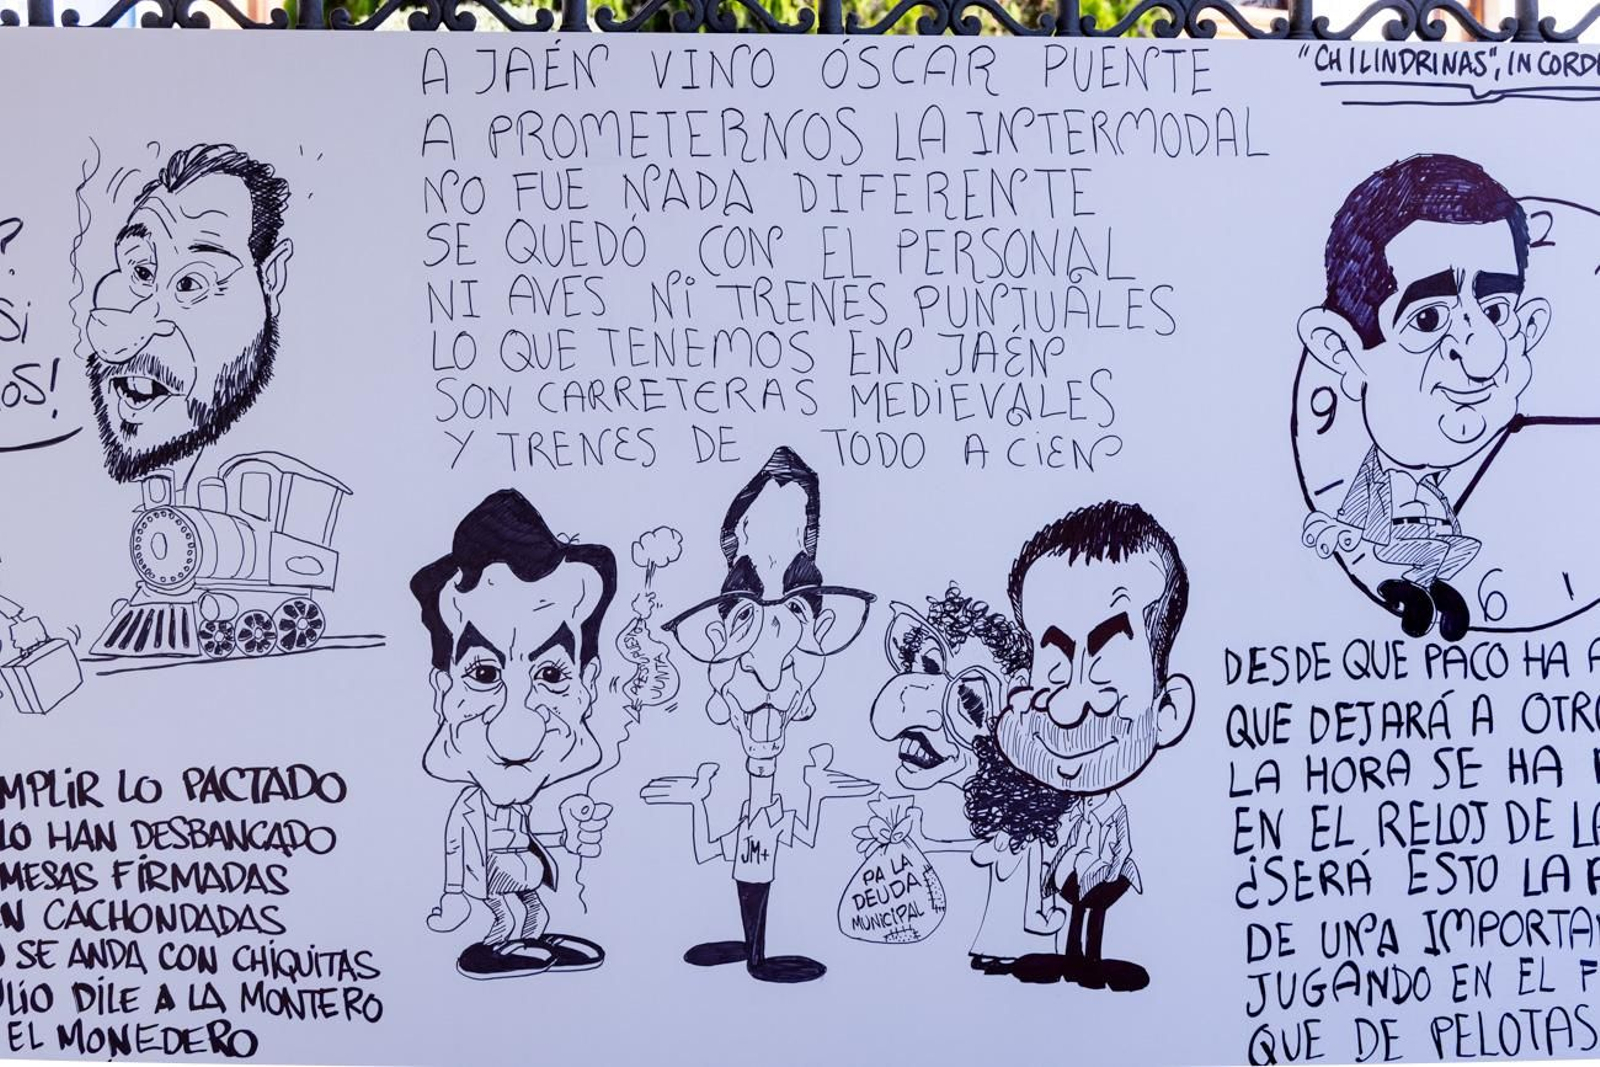 ?
Si
OS!
MPLIR LO PACTADO
LO HAN DESBANCADO
MESAS FIRMADAS
EN CACHONDADAS
SE ANDA CON CHIQUITAS
ULIO DILE A LA MONTERO
EL MONEDERO
A JAÉN VINO ÓSCAR PUENTE
A PROMETERNOS LA INTERMODAL
NO FUE NADA DIFERENTE
SE QUEDÓ CON EL PERSONAL
NI AVES Ni TRENES PUNTUALES
LO QUE TENEMOS EN JAÉN
SON CARRETERAS MEDIEVALES
Y TRENES DE TODO A CIEN
JUNTA
JM+
PA LA
DEUDA
MUNICIPAL
"CHILINDRINAS", IN CORDE
2
9
6
DESDE QUE PACO HA A
QUE DEJARÁ A OTRO
LA HORA SE HA
EN EL RELOJ DE LA
¿SERÁ ESTO LA
DE UNA IMPORTAN
JUGANDO EN EL F
QUE DE PELOTAS